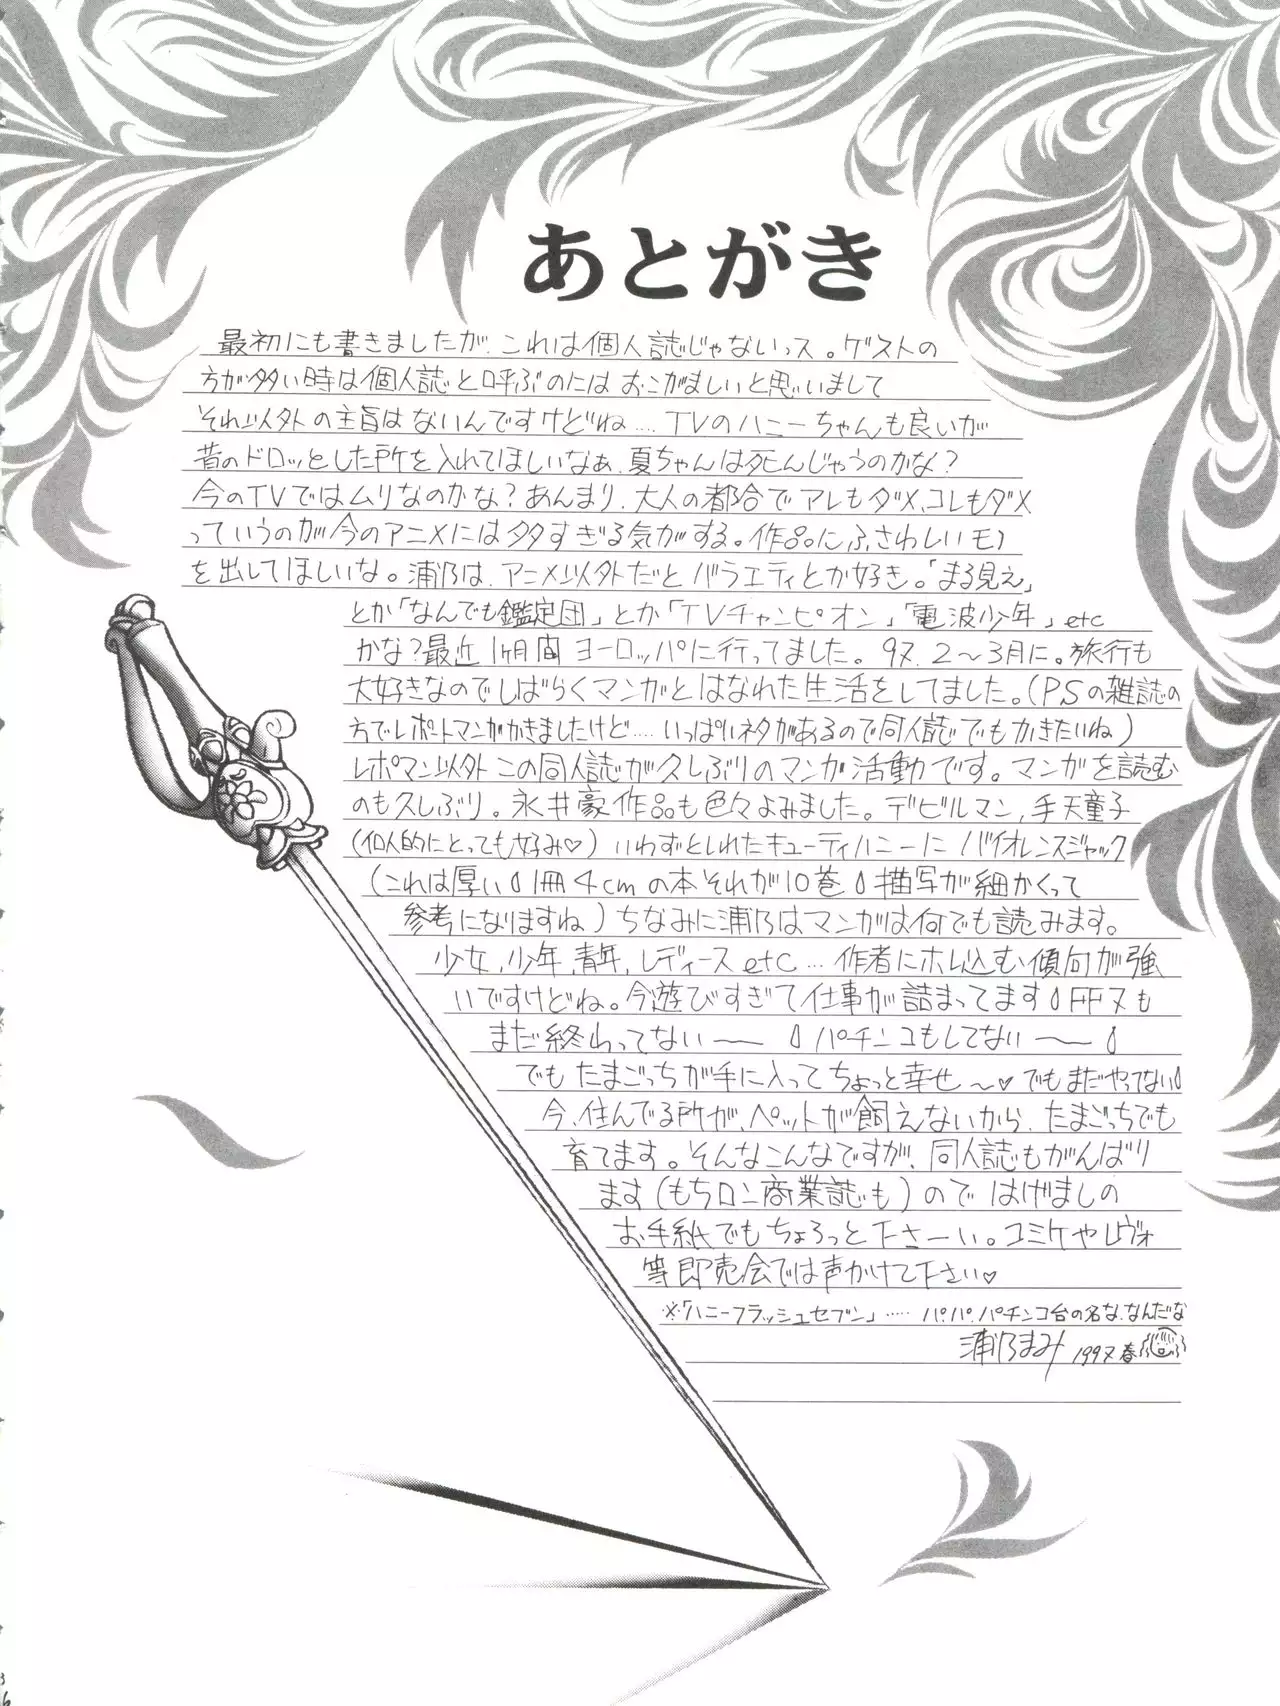 あとがき
最初にも書きましたが、これは個人誌じゃないっス。ゲストの
方が多い時は個人誌と呼ぶのにはおこがましいと思いまして
それ以外の主旨はないんですけどね‥‥TVのハニーちゃんも良いが
昔のドロッとした所を入れてほしいなぁ、夏ちゃんは死んじゃうのかな?
今のTVではムリなのかな?あんまり、大人の都合でアレもダメ、コレもダメ
っていうのが今のアニメには多すぎる気がする。作品にふさわしいモノ
を出してほしいな。浦乃は、アニメ以外だとバラエティとか好き。「まる見え」
とか「なんでも鑑定団」とか「TVチャンピオン」「電波少年」etc
かな?最近1ヶ月間ヨーロッパに行ってました。97.2〜3月に。旅行も
大好きなのでしばらくマンガとはなれた生活をしてました。(PSの雑誌の
方でレポートマンガかきましたけど‥‥いっぱいネタがあるので同人誌でもかきたいね)
レポマン以外この同人誌が久しぶりのマンガ活動です。マンガを読む
のも久しぶり。永井豪作品も色々よみました。デビルマン,手天童子
(個人的にとっても好み♡)いわずとしれたキューティハニーにバイオレンスジャック
(これは厚い 1冊4cmの本それが10巻 描写が細かくって
参考になりますね)ちなみに浦乃はマンガは何でも読みます。
少女,少年,青年,レディースetc…作者にホレ込む傾向が強
いですけどね。今遊びすぎて仕事が詰まってます FF7も
まだ終わってない〜 パチンコもしてない〜
でもたまごっちが手に入ってちょっと幸せ〜♡でもまだやってない
今、住んでる所が、ペットが飼えないから、たまごっちでも
育てます。そんなこんなですが、同人誌もがんばり
ます(もちロン商業誌も)のではげましの
お手紙でもちょろっと下さーい。コミケやレヴォ
等即売会では声かけて下さい♡
※「ハニーフラッシュセブン」‥‥パ,パ,パチンコ台の名な、なんだな
浦乃まみ 1997春